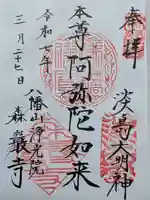 奉拝
淡島大明神
本尊阿弥陀如来
八幡山浄光院
森巖寺
令和七年
三月二十七日